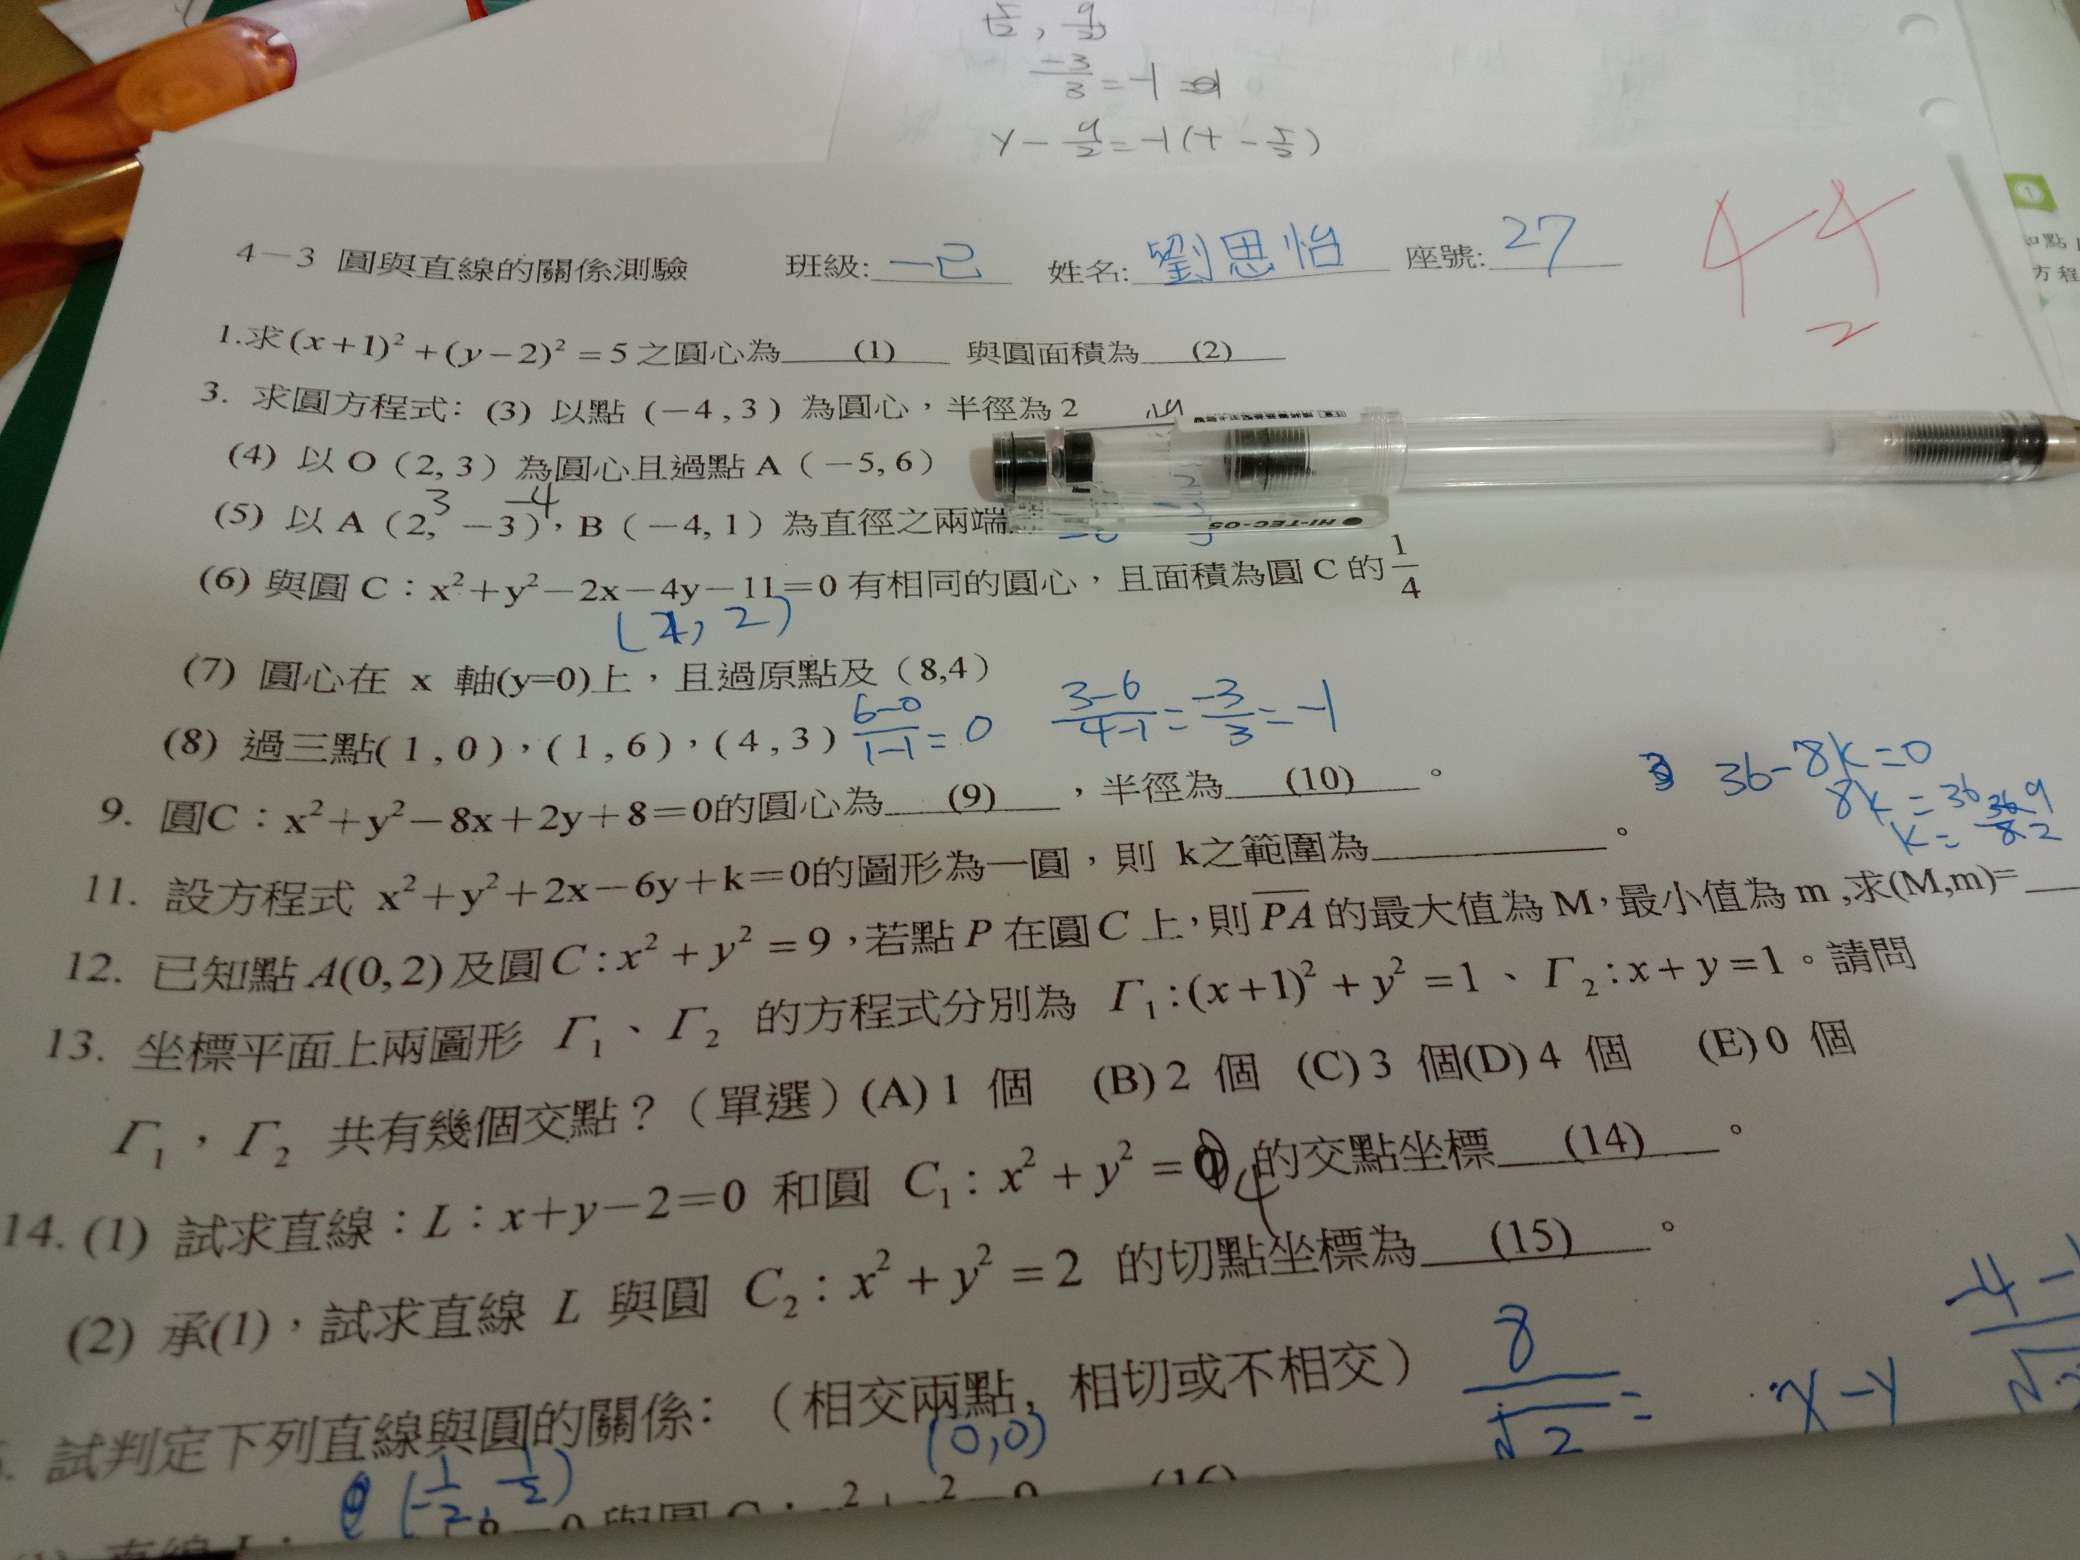 5/2 , 9/2
-3/3 = -1
y - 9/2 = -1(+ - 5/2)
4－3 圓與直線的關係測驗 班級: 一己 姓名: 劉思怡 座號: 27
44
2
1.求(x+1)²+(y−2)²=5之圓心為 (1) 與圓面積為 (2)
3. 求圓方程式: (3) 以點 (－4 , 3) 為圓心，半徑為 2
(4) 以 O（2, 3）為圓心且過點 A（－5, 6）
3 -4
(5) 以 A（2, －3）, B（－4, 1）為直徑之兩端
HI-TEC-05
(6) 與圓 C：x²＋y²－2x－4y－11＝0 有相同的圓心，且面積為圓 C 的 1/4
(1, 2)
(7) 圓心在 x 軸(y=0)上，且過原點及（8,4）
(8) 過三點( 1 , 0 )，( 1 , 6 )，( 4 , 3 ) 6-0/1-1 = 0 3-6/4-1 = -3/3 = -1
9. 圓C：x²＋y²－8x＋2y＋8＝0的圓心為 (9) ，半徑為 (10) 。
36-8k=0
8k=36
k= 36/8 9/2
11. 設方程式 x²＋y²＋2x－6y＋k＝0的圖形為一圓，則 k之範圍為 。
12. 已知點 A(0,2)及圓C:x²+y²=9，若點 P 在圓C 上，則PA的最大值為 M，最小值為 m ,求(M,m)=
13. 坐標平面上兩圖形 Γ₁、Γ₂ 的方程式分別為 Γ₁:(x+1)²+y²=1、Γ₂:x+y=1。請問
Γ₁，Γ₂ 共有幾個交點？（單選）(A) 1 個 (B) 2 個 (C) 3 個(D) 4 個 (E) 0 個
14. (1) 試求直線：L：x+y−2=0 和圓 C₁: x²+y²= 4 的交點坐標 (14) 。
(2) 承(1)，試求直線 L 與圓 C₂: x²+y²=2 的切點坐標為 (15) 。
8/√2 = x-y
試判定下列直線與圓的關係:（相交兩點, 相切或不相交）
(0,0)
(-1/2, 1/2)